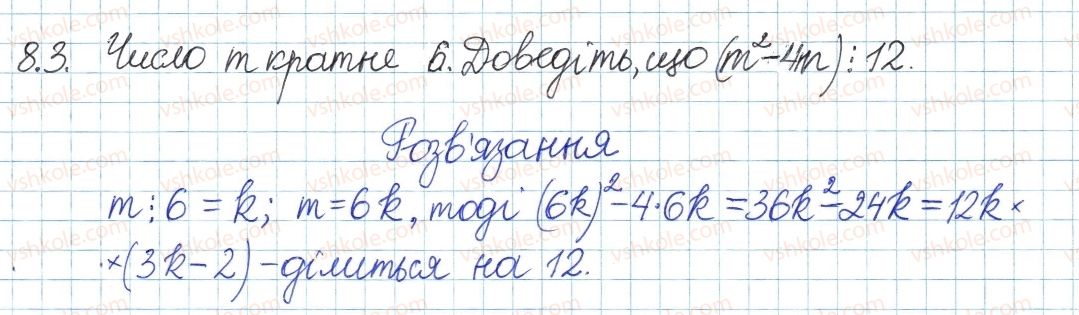 8.3. Число m кратне 6. Доведіть, що (m²-4m)⋮12.
Розв'язання
m⋮6=k; m=6k, тоді (6k)²-4·6k=36k²-24k=12k×
×(3k-2) - ділиться на 12.